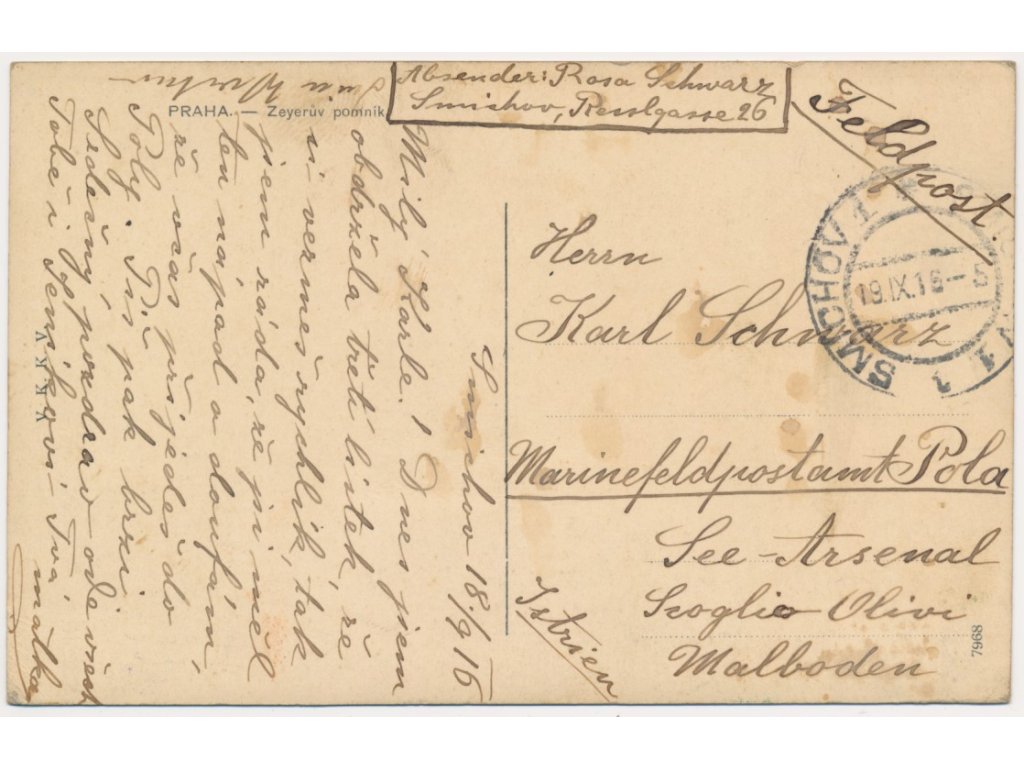 Absender: Rosa Schwarz
Smichov, Resslgasse 26
Feldpost.
PRAHA. — Zeyerův pomník
SMÍCHOV 1
19.IX.16-5
Herrn
Karl Schwarz
Marinefeldpostamt Pola
See-Arsenal
Scoglio Olivi
Malboden
Istrien
7968
V. K. K. V.
Smichov 18/9 16
Milý Karle! Dnes jsem
obdržela třetí lístek, že
si vezmeš rychlík, tak
jsem ráda, že jsi měl
ten nápad a doufám,
že včas přijedeš do
Poly. Piš pak brzi.
Srdečný pozdrav ode všech
Tobě i Jeníkovi Tvá
matka